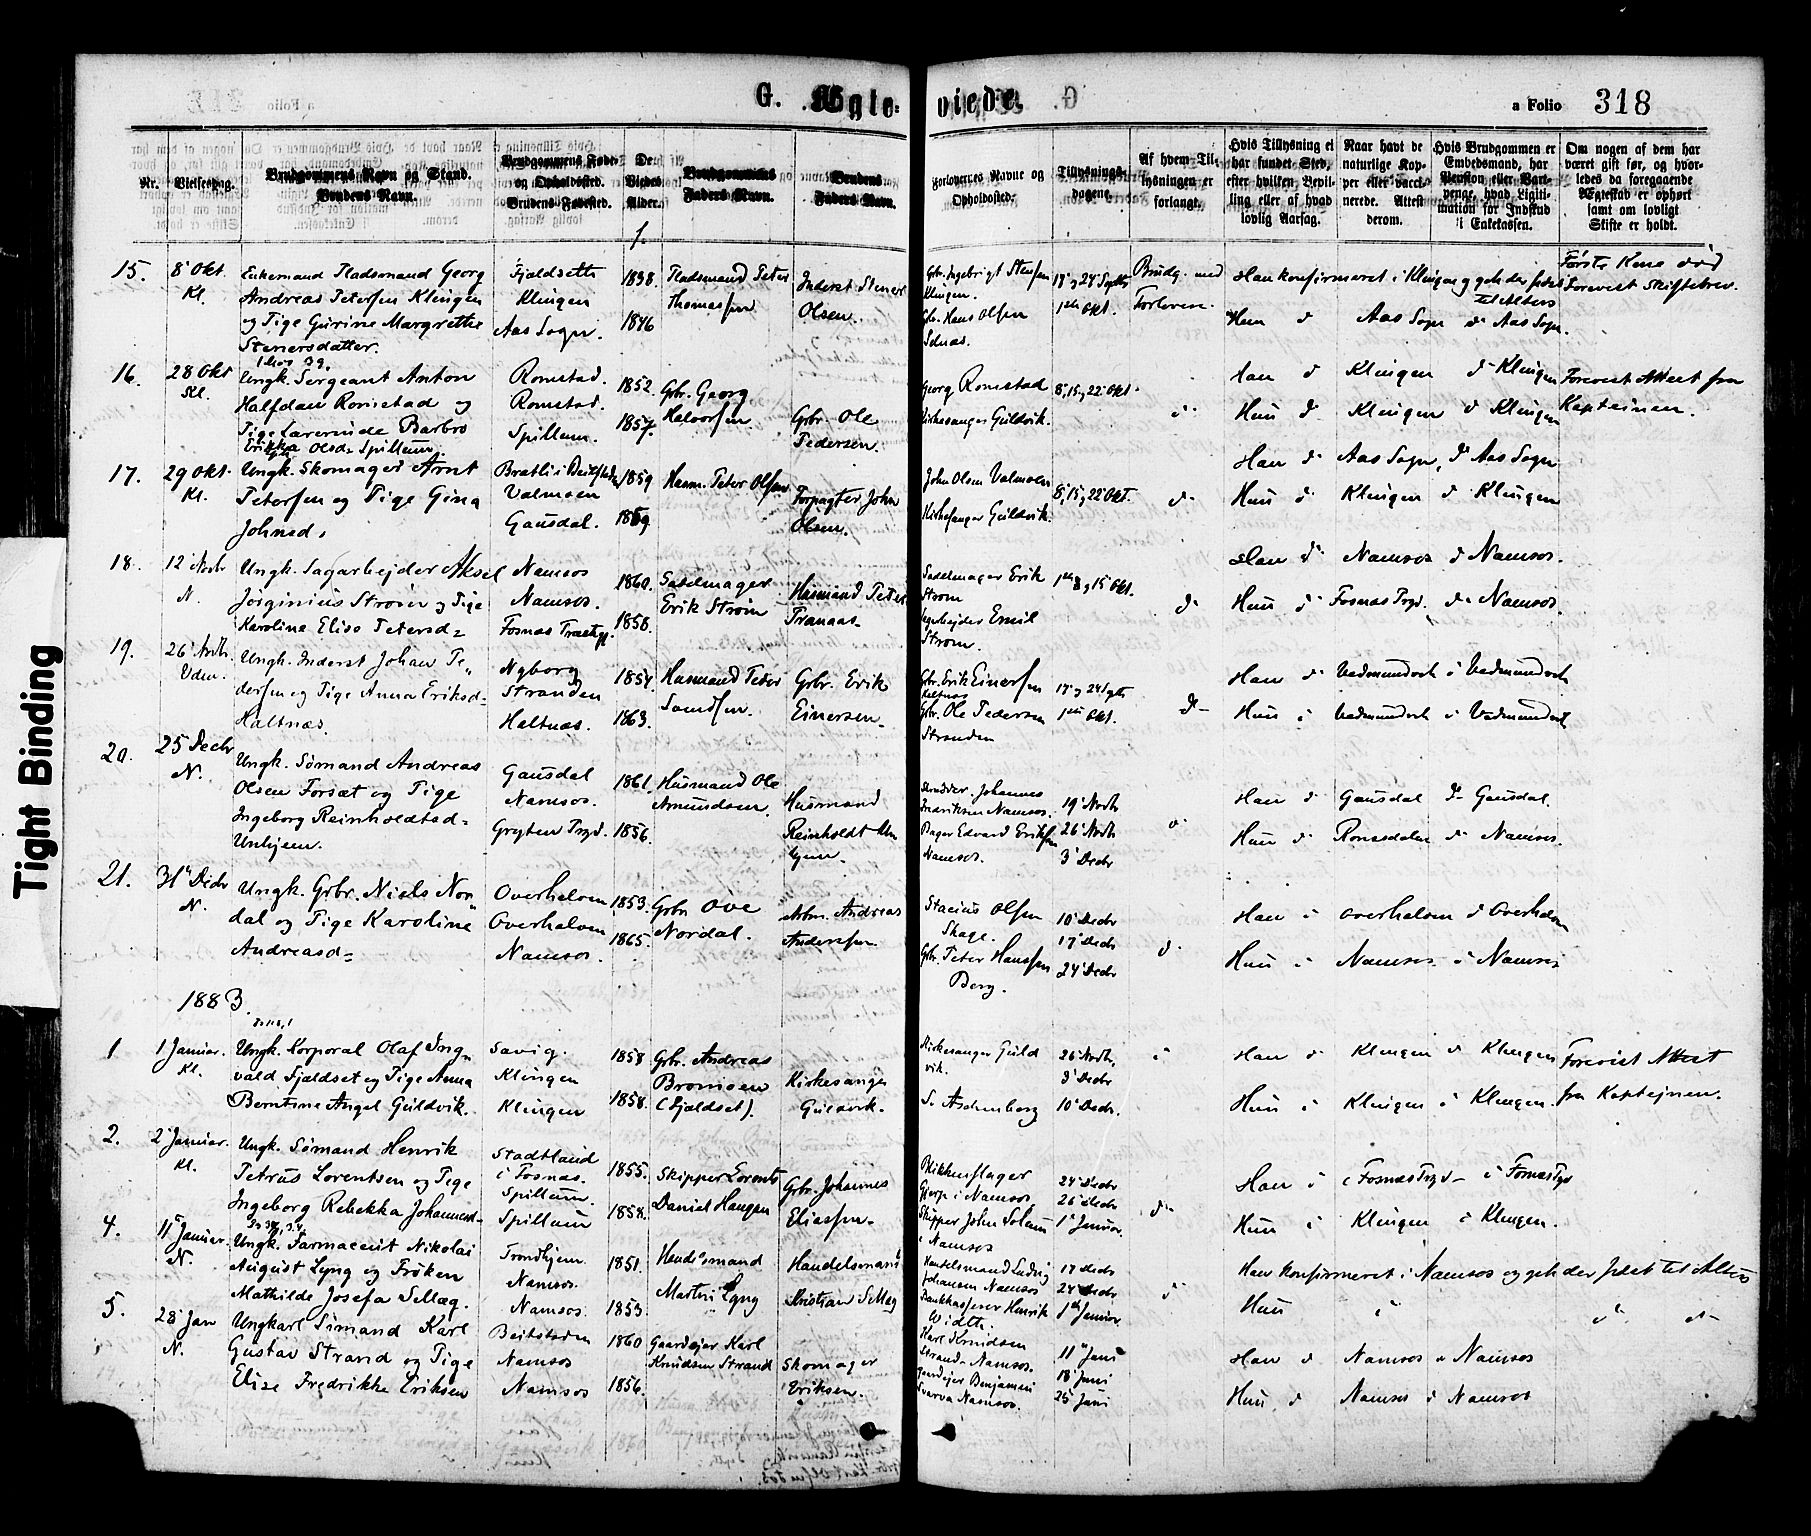 G. Ægte-
viede. G.
a Folio 318
Tight Binding
Nr.
Vielsesdag.
Brudgommens Navn og Stand.
Brudens Navn.
Brudgommens Føde-
og Opholdssted.
Brudens Fødested.
De
Viedes
Alder.
Brudgommens
Faders Navn.
Brudens
Faders Navn.
Forlovernes Navne og
Opholdssted.
Tillysnings-
dagene.
Af hvem Til-
lysningen er
forlangt.
Hvis Tillysning ei
har fundet Sted,
efter hvilken Bevil-
ling eller af hvad
lovlig Aarsag.
Naar havt de
naturlige Kop-
per eller vacci-
nerede. Attest
derom.
Hvis Brudgommen er
Embedsmand, har
Pension eller Var-
penge, hvad Ligiti-
mation for Indskud
i Enkekassen.
Om nogen af dem har
været gift før, og hvor-
ledes da foregaaende
Ægteskab er ophørt
samt om lovligt
Skifte er holdt.
15.
8 Okt.
Kl.
Enkemand Pladsmand Georg
Andreas Petersen Klingen
og Pige Gurine Margrethe
Stenersdatter.
Fjeldseth
Klingen
Aas Sogn.
1838.
1846
Pladsmand Peter
Thomassen
Inderst Stener
Olsen.
Gbr. Ingebrigt Stensen
Klingen.
Gbr. Hans Olsen
Selnæs.
17 og 24 Septbr
1ste Okt.
Brudg. med
Forlovere.
Han konfirmeret i Klingen og gik der sidst
til Alters
Hun d Aas Sogn d Aas Sogn.
Første Kone død
Forevist Skiftebrev.
16.
28 Okt
Kl.
Ungk. Sergeant Anton
Halfdan Romstad og
Pige Lærerinde Barbro
Erikka Olsd= Spillum
Romstad.
Romstad.
Spillum.
1852.
1857.
Gbr. Georg
Halvorsen
Grbr. Ole
Pedersen.
Georg Romstad
Kirkesanger Guldvik.
8, 15 og 22 Okt.
Han d Klingen d Klingen
Hun d Klingen d Klingen
Forevist Attest fra
Kapteinen.
17.
29 Okt.
Kl.
Ungk. Skomager Arnt
Petersen og Pige Gina
Johnsd.
Bratli i Beitstaden
Valmoen
Gausdal.
1859
1859.
Husm. Peter Olsen
Forpagter John
Olsen.
John Olsen Valmoen
Kirkesanger Guldvik.
8, 15 og 22 Okt.
d
Han d Aas Sogn, d Aas Sogn
Hun d Klingen d Klingen
18.
12 Novbr
N.
Ungk. Sagarbejder Aksel
Jørginius Strøm og Pige
Karoline Elise Petersd=
Namsos
Namsos.
Fosnæs Præstegj.
1860.
1858.
Sadelmager
Erik Strøm
Husmand Peter
Tranaas
Sadelmager Erik
Strøm
Sagarbejder Emil
Strøm.
1ste, 8 og 15 Okt.
d
Han d Namsos d Namsos.
Hun d Fosnæs Prgd. d Namsos.
19.
26 Novbr.
Vdm.
Ungk. Inderst Johan Pe-
dersen og Pige Anna Eriksd=
Haltnæs.
Nyborg
Stranden
Haltnæs.
1854.
1863.
Husmand Peder
Gbr. Erik
Einersen
Gbr. Erik Einersen
Haltnæs
Gbr. Ole Pedersen
Stranden
17 og 24 Septbr
1ste Okt.
d
Han d Vedmundvik i Vedmundvik
Hun i Vedmundvik i Vedmundvik
20.
25 Decbr
N.
Ungk. Sømand Andreas
Olsen Forsæt og Pige
Ingeborg Reinholdtsd=
Unhjem.
Gausdal
Namsos.
Gryten Prgd.
1861.
1856.
Husmand Ole
Amundsen
Husmand
Reinholdt Un
hjem.
Skrædder Johannes
Hendriksen Namsos.
Bager Edvard Eriksen
Namsos.
19 Novbr
26 Novbr
3 Decbr
d
Han d Gausdal d Gausdal.
Hun d Romsdalen d Namsos.
21.
31 Decbr
N.
Ungk. Grbr. Niels Nor
dal og Pige Karoline
Andreasd=
Overhalven
Overhalven
Namsos.
1853.
1865.
Grbr Ove
Nordal.
Arbm. Andreas
Andersen
Stacius Olsen
Skage.
Gbr. Peter Hansen
Berg.
10 Decbr
17 Decbr
24 Decbr
d.
Han i Overhalven d Overhalven
Hun i Namsos i Namsos
1883.
1
1 Januar.
Kl.
Ungk. Korporal Olaf Ing-
vald Fjeldset og Pige Anna
Berntine Angel Guldvik.
Savig.
Klingen
Klingen
1858
1858.
Gbr. Andreas
Bromoen
(Fjeldset).
Kirkesanger
Guldvik.
Kirkesanger Guld
vik.
S. Aschenberg
26 Novbr.
3 Decbr
10 Decbr.
Han d Klingen d Klingen
Hun i Klingen i Klingen.
Forevist Attest
fra Kapteinen.
2.
2 Januar.
Kl.
Ungk. Sømand Henrik
Petrus Lorentsen og Pige
Ingeborg Rebekka Johannesd=
Stadtland
i Fosnæs.
Spillum.
Spillum
1855.
1858.
Skipper Lorents
Daniel Haugen
Grbr. Johannes
Eliassen
Blikkenslager
Gjerp i Namsos
Skipper John Solum
i Namsos
24 Decbr
26 Decbr
1 Januar
d
Han i i Fosnæs Prgd i Fosnæs Prgd
Hun i Klingen i Klingen.
4.
11 Januar.
N.
Ungk. Farmaceut Nikolai
August Lyng og Frøken
Mathilde Josefa Sellæg.
Trondhjem
Namsos.
Namsos
1851.
1853
Handelsmand
Martin Lyng
Handelsmand
Kristian Sellæg
Handelsmand Ludvig
Johansen Namsos
Bankkasserer Henrik
Widthe.
17 Decbr
24 Decbr
1ste Januar
Han konfirmeret i Namsos og gik der sidst til Alters
Hun
5.
28 Jan
N.
Ungkarl Sømand Karl
Gustav Strand og Pige
Elise Fredrikke Eriksen
Beitstaden
Namsos
Namsos
1860
1856.
Gaardejer Karl
Knudsen Strand
Skomager
Eriksen.
Karl Knudsen
Strand Namsos.
Gaardejer Benjamin
Svarva Namsos.
11 Janu
18 Janu
25 Janu
Han d Namsos d Namsos
Hun d Namsos d Namsos